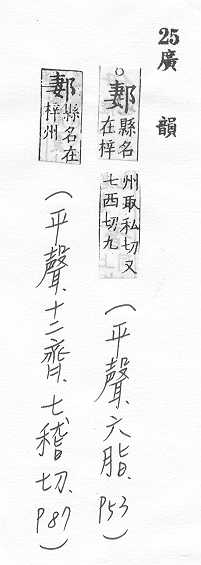 25廣韻
○郪縣名在梓州取私切又七西切九(平聲、六脂、P53)
郪縣名在梓州(平聲、十二齊、七稽切、P87)